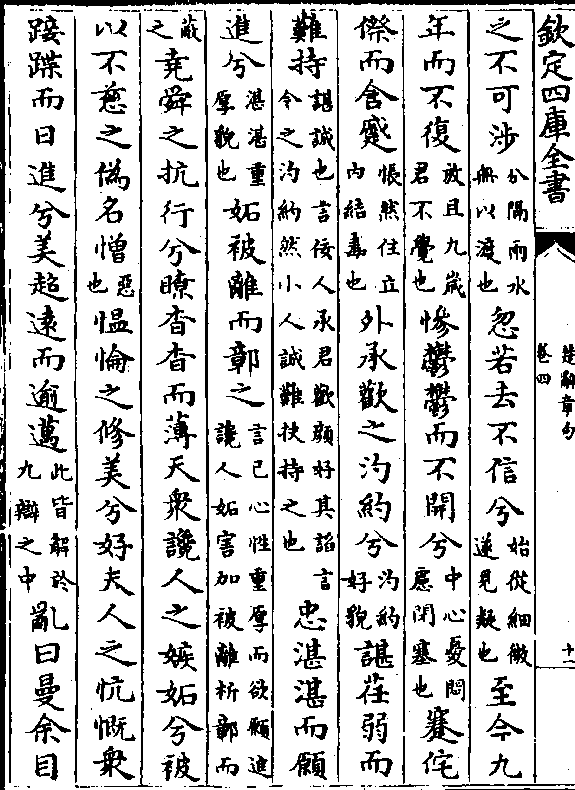 欽定四庫全書 楚辭章句卷四 十一
之不可涉分隔兩水無以渡也忽若去不信兮始從細微遂見疑也至今九
年而不復放且九歲君不覺也慘鬱鬱而不開兮中心憂悶慮閉塞也蹇侘
傺而含慼悵然住立內結毒也外承歡之汋約兮汋約好貌諶荏弱而
難持諶誠也言佞人承君歡顔好其諂言令之汋約然小人誠難扶持之也忠湛湛而願
進兮湛湛重厚貌也妬被離而鄣之言己心性重厚而欲願進讒人妬害加被離析鄣而
蔽之堯舜之抗行兮瞭杳杳而薄天衆讒人之嫉妬兮被
以不慈之偽名憎惡也愠惀之修美兮好夫人之忼慨衆
踥蹀而日進兮美超遠而逾邁此皆解於九辯之中亂曰曼余目